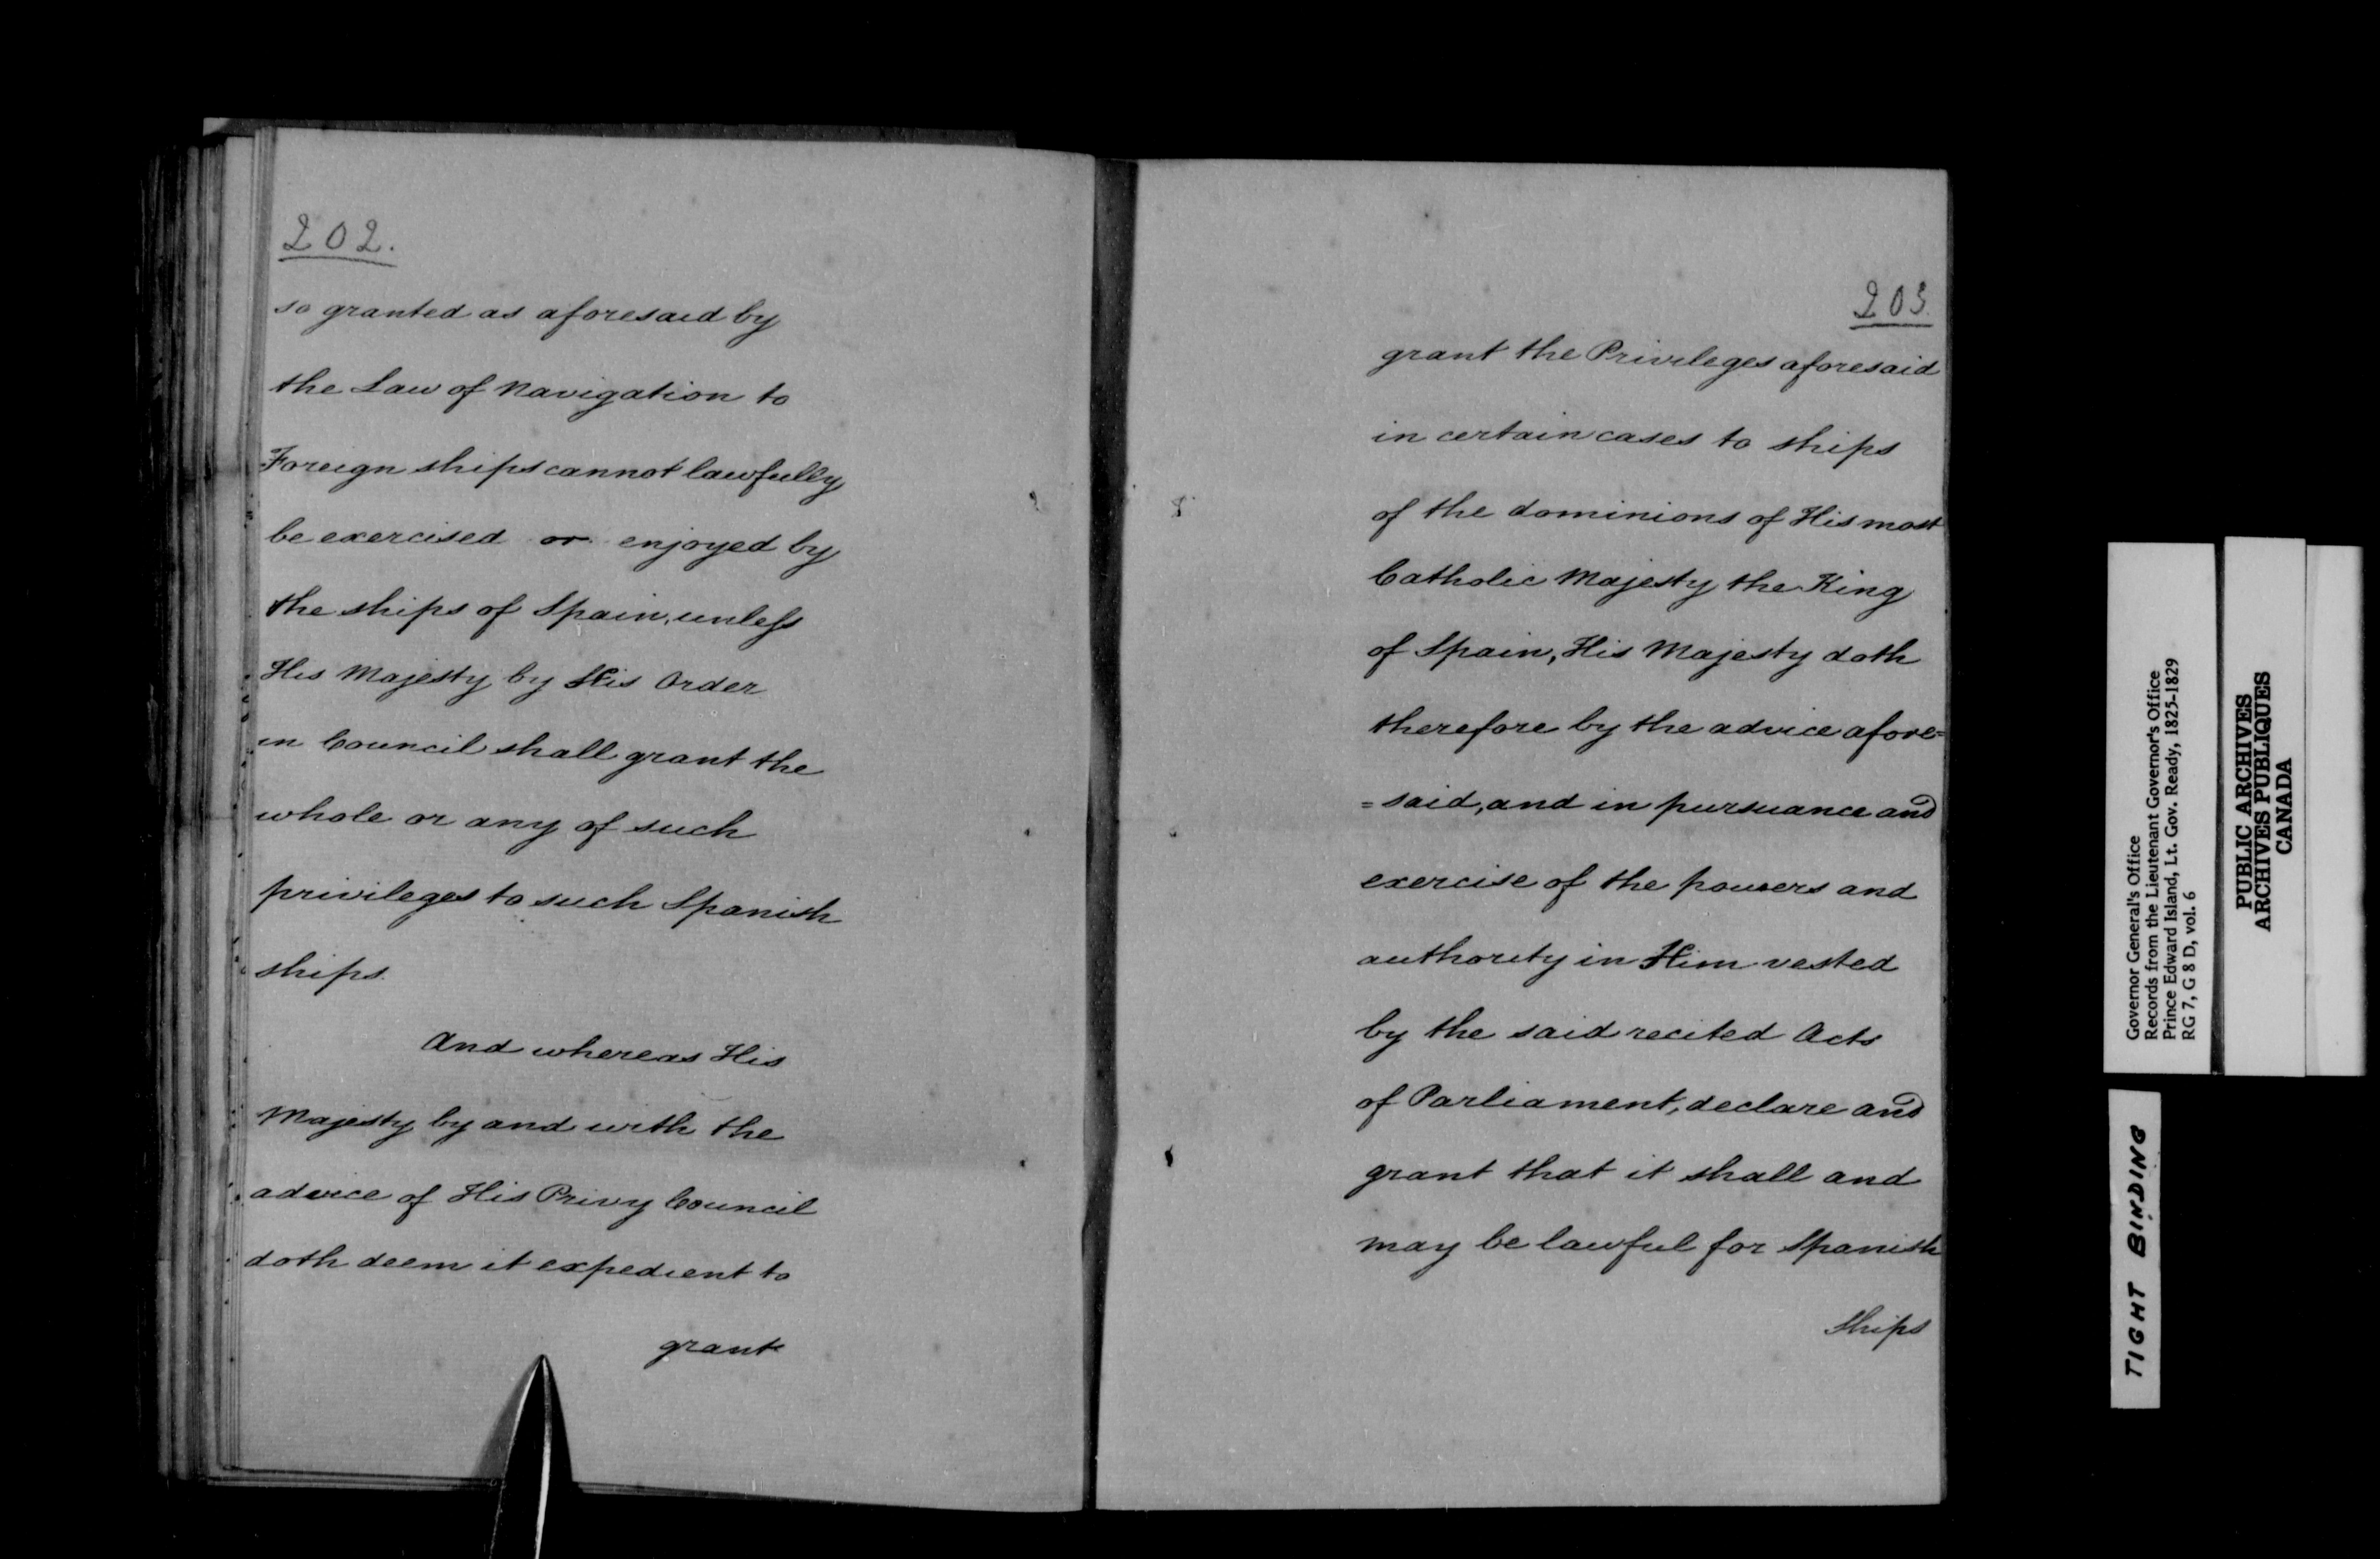 202.
so granted as aforesaid by
the Law of Navigation to
Foreign ships cannot lawfully
be exercised or enjoyed by
the ships of Spain, unless
His Majesty by His Order
in Council shall grant the
whole or any of such
privileges to such Spanish
ships.
And whereas His
Majesty by and with the
advice of His Privy Council
doth deem it expedient to
grant
203.
grant the Privileges aforesaid
in certain cases to ships
of the dominions of His most
Catholic Majesty the King
of Spain, His Majesty doth
therefore by the advice afore=
=said, and in pursuance and
exercise of the powers and
authority in Him vested
by the said recited Acts
of Parliament, declare and
grant that it shall and
may be lawful for Spanish
Ships
Governor General's Office
Records from the Lieutenant Governor's Office
Prince Edward Island, Lt. Gov. Ready, 1825-1829
RG 7, G 8 D, vol. 6
PUBLIC ARCHIVES
ARCHIVES PUBLIQUES
CANADA
TIGHT BINDING